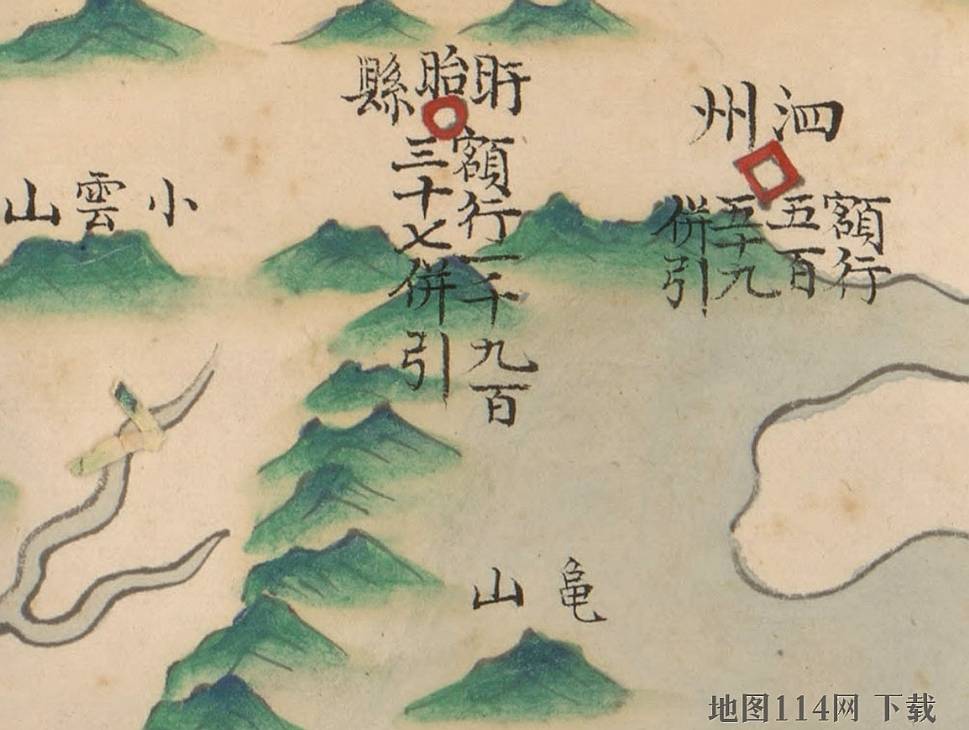 泗州
額行
五百
五十九
併引
盱眙縣
額行一千九百
三十七併引
小雲山
龟山
地图114网 下载